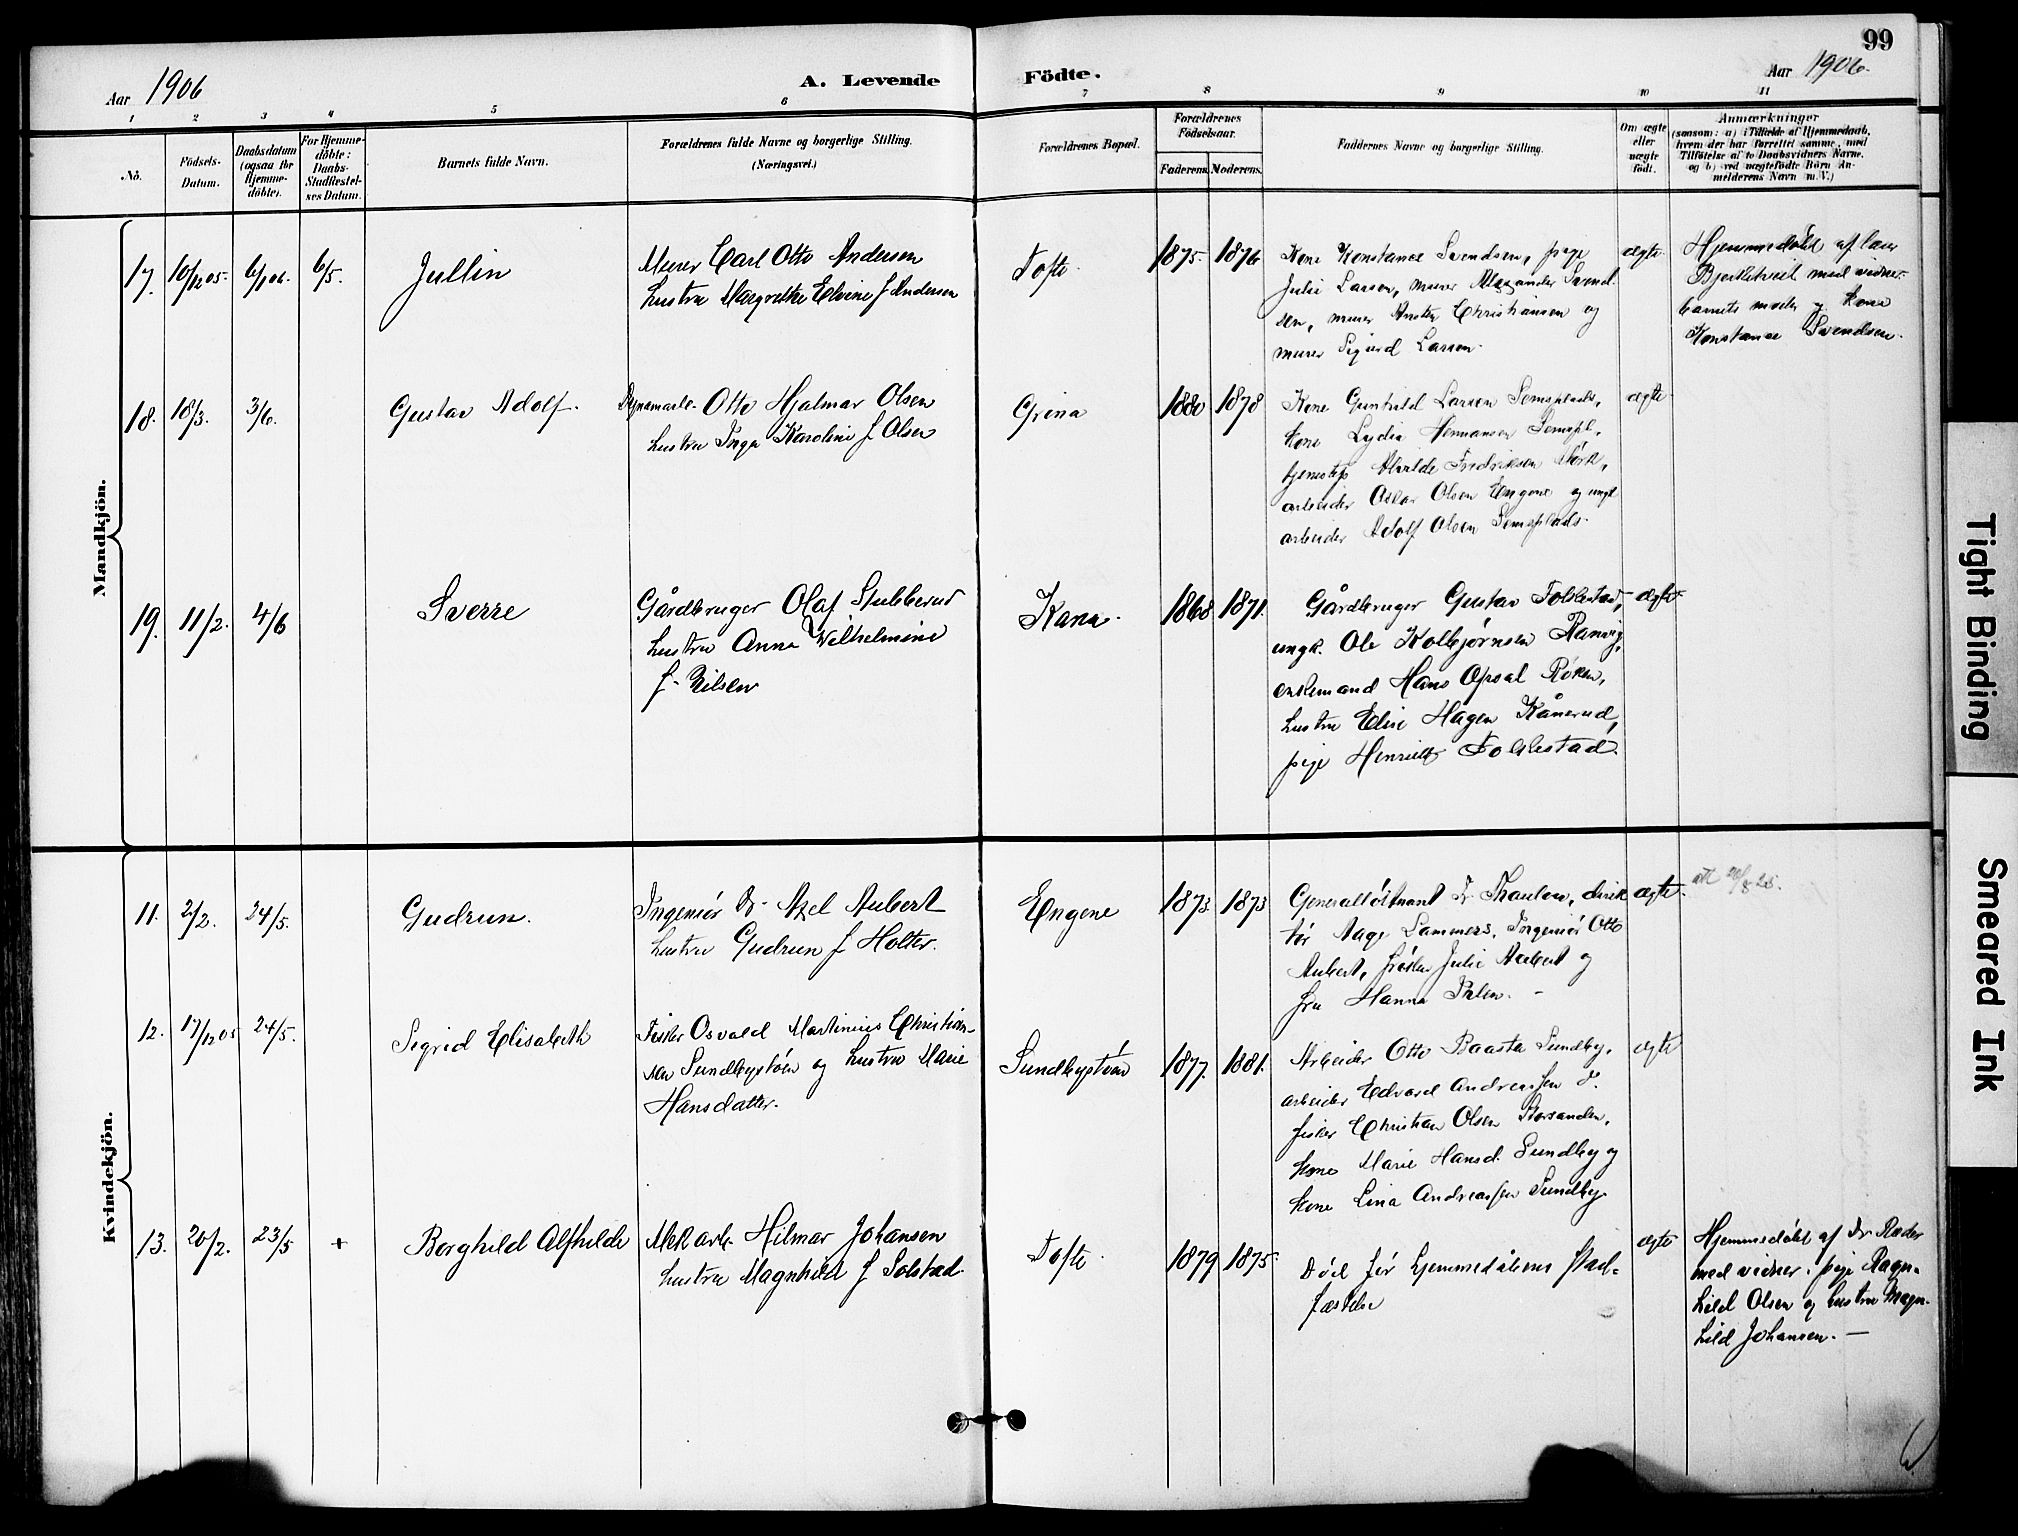 99
Aar 1906
A. Levende Födte.
Aar 1906.
1 2 3 4 5 6 7 8 9 10 11
No.
Födsels-
Datum.
Daabsdatum
(ogsaa for
Hjemme-
döbte).
For Hjemme-
döbte:
Daabs-
Stadfæstel-
ses Datum.
Barnets fulde Navn.
Forældrenes fulde Navne og borgerlige Stilling.
(Næringsvei.)
Forældrenes Bopæl.
Forældrenes
Födselsaar.
Faderens. Moderens.
Faddernes Navne og borgerlige Stilling.
Om ægte
eller
uægte
födt.
Anmærkninger
(saasom: a) i Tilfælde af Hjemmedaab,
hvem der har forrettet samme, med
Tilföielse af to Daabsvidners Navne,
og b) ved uægtefödte Börn An-
melderens Navn m. V.)
Mandkjön.
17. 10/12 05. 6/1 06. 6/5. Jullin
Murer Carl Otto Andersen
hustru Margrethe Elvine f. Andersen
Tofte. 1875. 1876
Kone Konstance Svendsen, pige
Julie Larsen, murer Alexander Svend-
sen, murer Anton Christiansen og
murer Sigurd Larsen.
ægte
Hjemmedøbt af lærer
Bjerketveit med vidner
barnets moder og kone
Konstance Svendsen.
18. 18/3. 3/6. Gustav Adolf.
Dynamarb. Otto Hjalmar Olsen
hustru Inga Karoline f. Olsen
Grina 1880 1878
Kone Gunhild Larsen Semsplads,
kone Lydia Hermansen Semspl.
tjenestep. Alvilde Fredriksen
arbeider Oskar Olsen Engene og ungk.
arbeider Adolf Olsen Semsplads.
ægte
19. 11/2. 4/6 Sverre
Gårdbruger Olaf Stubberud
hustru Anna Wilhelmine
f. Nilsen
Kana. 1868 1871.
Gårdbruger Gustav Folkestad,
ungk. Ole Kolbjørnsen Ramvig,
enkemand Hans Opsal Røken,
hustru Elise Hagen Kånerud,
pige Henriette Folkestad.
ægte
Kvindekjön.
11. 2/2. 24/5. Gudrun.
Ingeniør Axel Aubert
hustru Gudrun f. Holter.
Engene 1873 1873
Generalløitnant Thaulow, direk
tør Aage Lammers, Ingeniør Otto
Aubert, frøken Julie Aubert og
fru Hanna
ægte.
12. 17/12 05 24/5. Sigrid Elisabeth
Fisker Osvald Martinius Christian-
sen Sundbystøen og hustru Marie
Hansdatter.
Sundbystøen 1877. 1881.
Arbeider Otto Baasta Sundby,
arbeider Edvard Andreassen
fisker Christian Olsen Storsanden,
kone Marie Hansd. Sundby og
kone Lina Andreassen Sundby.
ægte
13. 20/2. 23/5 + Borghild Alfhilde
Mek arb. Hilmar Johansen
hustru Magnhild f. Solstad.
Tofte. 1879 1875.
Død før hjemmedåbens stad-
fæstelse
ægte
Hjemmedøbt af Dr Ræder
med vidner: pige Ragn-
hild Olsen og hustru Magn-
hild Johansen. —
Tight Binding
Smeared Ink